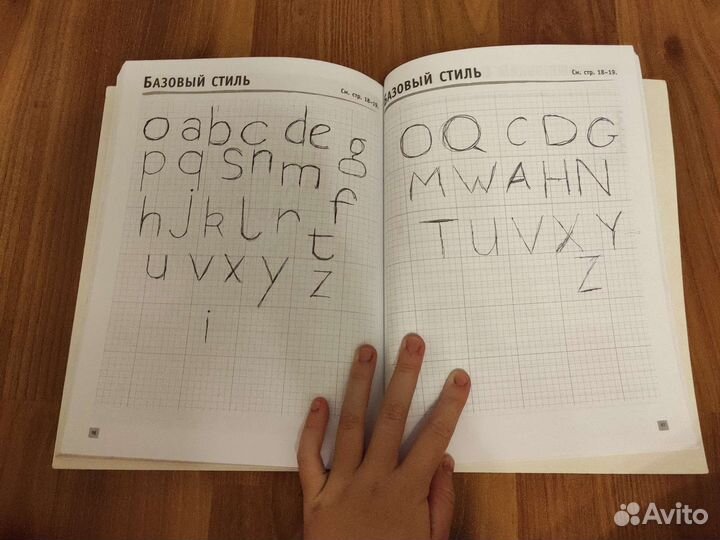 Базовый стиль
См. стр. 18-19.
o a b c d e g
p q s n m
h j k l r f
t
u v x y z
i
Базовый стиль
См. стр. 18-19.
O Q C D G
M W A H N
T U V X Y
Z
Avito